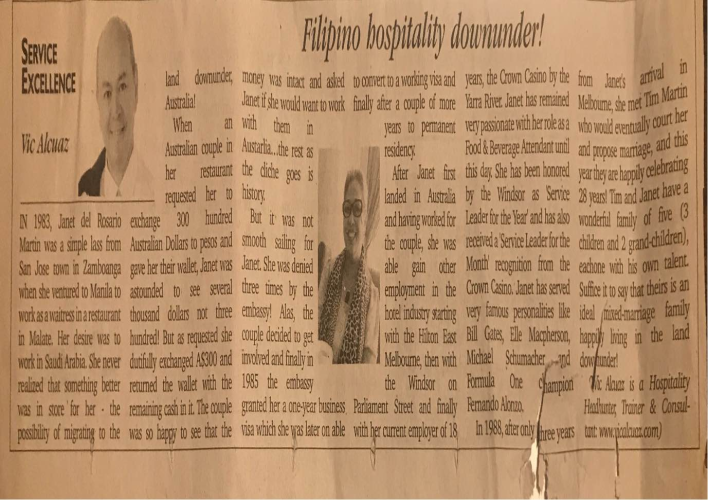 Filipino hospitality downunder!
SERVICE
EXCELLENCE
Vic Alcuaz
IN 1983, Janet del Rosario
Martin was a simple lass from
San Jose town in Zamboanga
when she ventured to Manila to
work as a waitress in a restaurant
in Malate. Her desire was to
work in Saudi Arabia. She never
realized that something better
was in store for her - the
possibility of migrating to the
land downunder,
Australia!
When an
Australian couple in
her restaurant
requested her to
exchange 300 hundred
Australian Dollars to pesos and
gave her their wallet, Janet was
astounded to see several
thousand dollars not three
hundred! But as requested she
dutifully exchanged A$300 and
returned the wallet with the
remaining cash in it. The couple
was so happy to see that the
money was intact and asked
Janet if she would want to work
with them in
Austarlia...the rest as
the cliche goes is
history.
But it was not
smooth sailing for
Janet. She was denied
three times by the
embassy! Alas, the
couple decided to get
involved and finally in
1985 the embassy
granted her a one-year business
visa which she was later on able
to convert to a working visa and
finally after a couple of more
years to permanent
residency.
After Janet first
landed in Australia
and having worked for
the couple, she was
able gain other
employment in the
hotel industry starting
with the Hilton East
Melbourne, then with
the Windsor on
Parliament Street and finally
with her current employer of 18
years, the Crown Casino by the
Yarra River. Janet has remained
very passionate with her role as a
Food & Beverage Attendant until
this day. She has been honored
by the Windsor as Service
Leader for the Year' and has also
received a Service Leader for the
Month' recognition from the
Crown Casino. Janet has served
very famous personalities like
Bill Gates, Elle Macpherson,
Michael Schumacher and
Formula One champion
Fernando Alonzo.
In 1988, after only three years
from Janet's arrival in
Melbourne, she met Tim Martin
who would eventually court her
and propose marriage, and this
year they are happily celebrating
28 years! Tim and Janet have a
wonderful family of five (3
children and 2 grand-children),
eachone with his own talent.
Suffice it to say that theirs is an
ideal mixed-marriage family
happily living in the land
downunder!
Vic Alcuaz is a Hospitality
Headhunter, Trainer & Consul-
tant: www.vicalcuaz.com)